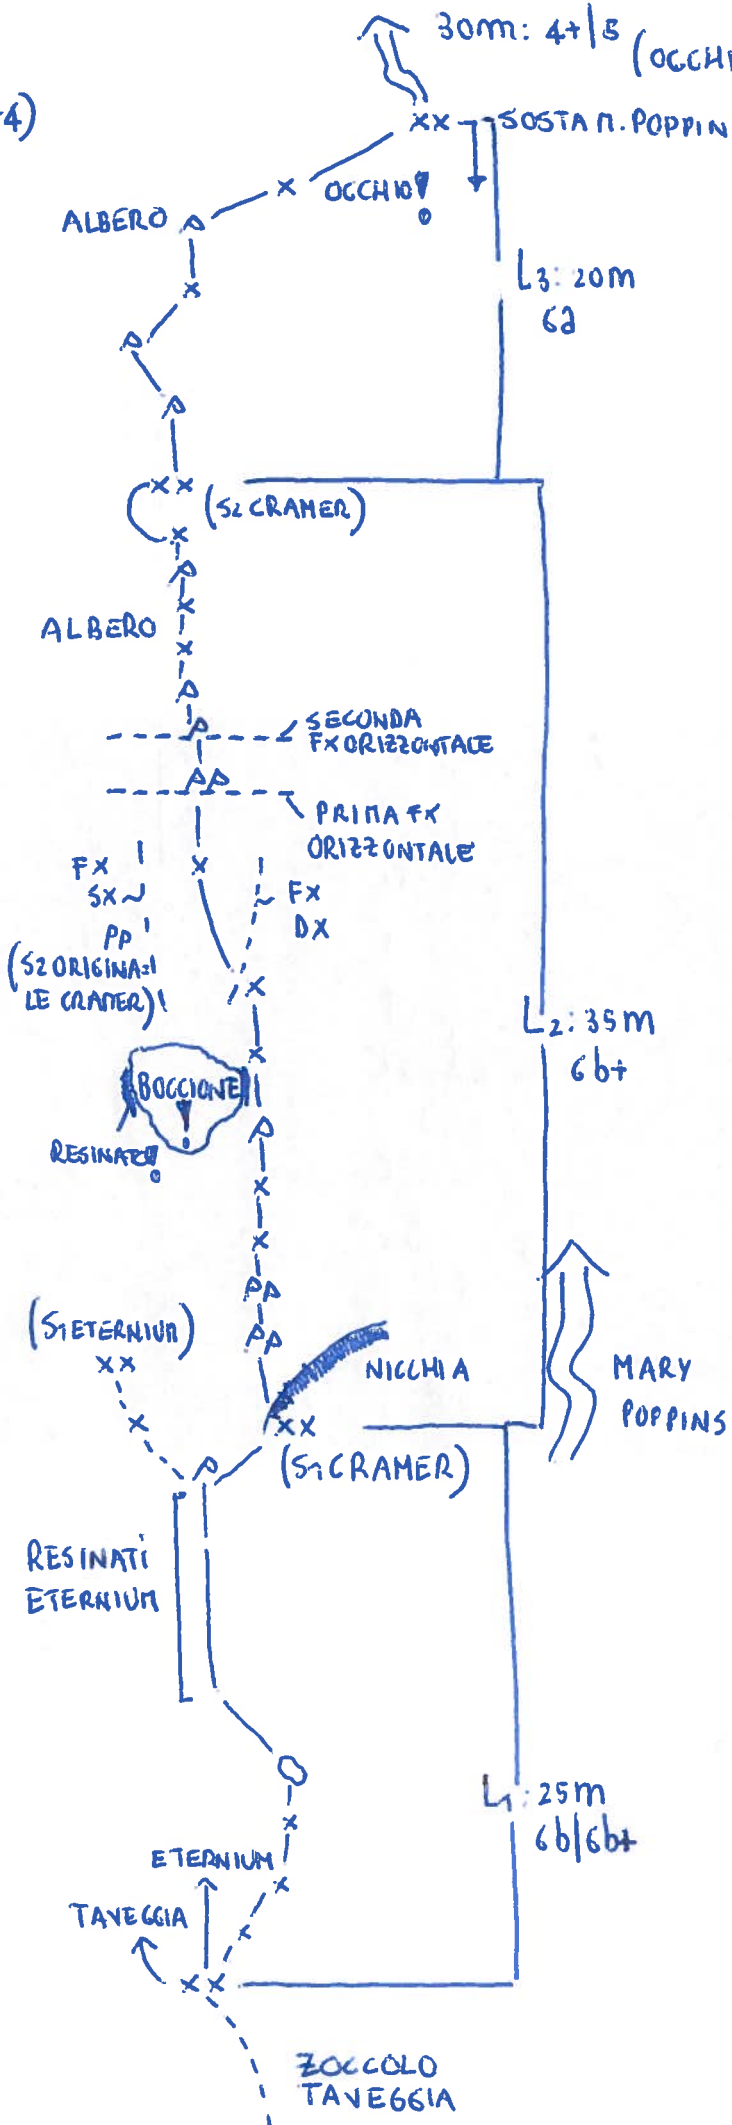 30m: 4+/5 (OCCHI
4)
XX SOSTA M. POPPIN
X OCCHIO!
ALBERO P
X
L3: 20m
6a
P
P
XX
(S2 CRAMER)
X
P
X
ALBERO
X
P
P
SECONDA
FX ORIZZONTALE
PP
PRIMA FX
ORIZZONTALE
X
FX
SX
FX
DX
PP
(S2 ORIGINA=
LE CRAMER)
X
L2: 35m
6b+
X
BOCCIONE
!
P
RESINATO!
X
X
PP
(S1 ETERNIUM)
PP
XX
NICCHIA
MARY
POPPINS
X
XX
(S1 CRAMER)
P
RESINATI
ETERNIUM
L1: 25m
6b/6b+
X
ETERNIUM
X
TAVEGGIA
X
XX
ZOCCOLO
TAVEGGIA